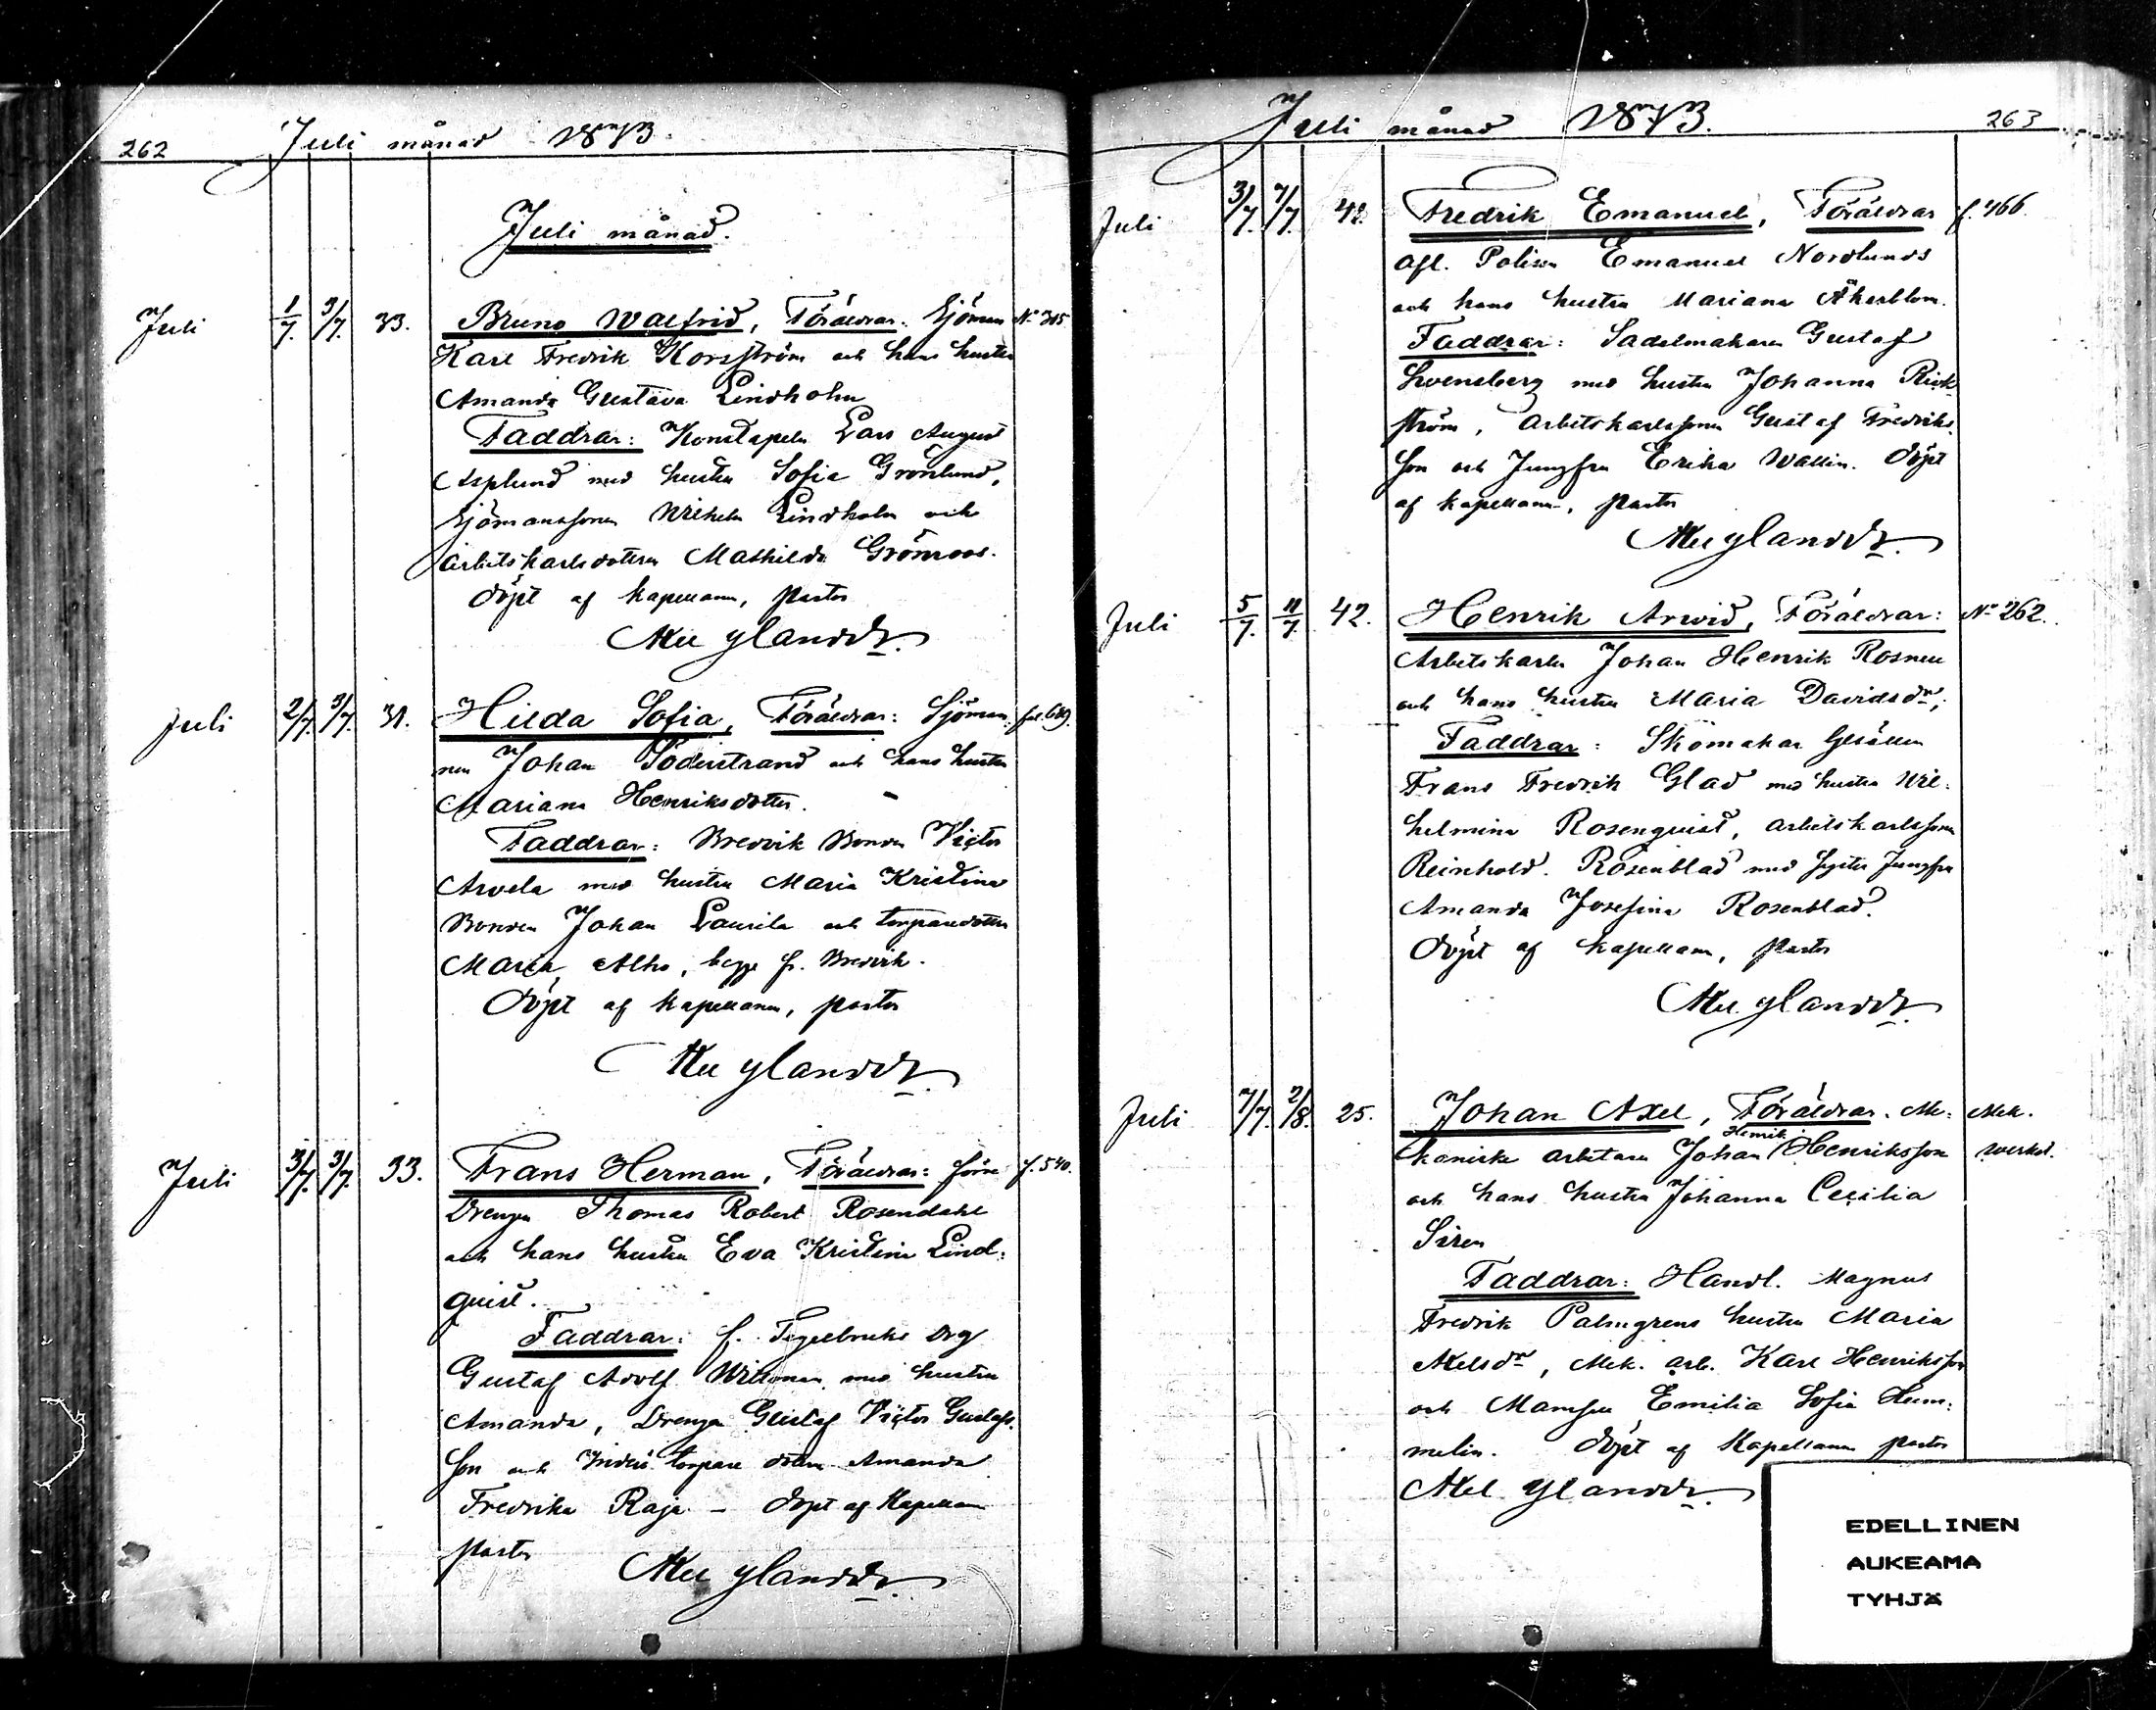 262 Juli månad 1873.
Juli månad.
Juli 1/7. 3/7. 33. Bruno Walfrid, Föräldrar: Sjöman No 315
Karl Fredrik Korsström och hans hustru
Amanda Gustava Lindholm
Faddrar: Konstapeln Lars August
Asplund med hustru Sofia Grönlund,
Sjömanssonen Wilhelm Lindholm och
arbetskarlsdottern Mathilda Grönroos.
Döpt af kapellanen, pastor
Axel Ylander.
Juli 2/7. 3/7. 31. Hilda Sofia, Föräldrar: Sjöman-
nen Johan Söderstrand och hans hustru
Mariana Henriksdotter.
Faddrar: Bredvik Bonden Victor
Arvela med hustru Maria Kristina
Bonden Johan Laurila och torparedottern
Maria Alho, begge fr. Bredvik.
Döpt af kapellanen, pastor
Axel Ylander.
Juli 3/7. 3/7. 33. Frans Herman, Föräldrar: förre f. 540.
Drengen Thomas Robert Rosendahl
och hans hustru Eva Kristina Lind-
quist.
Faddrar: f. Tegelbruks drg
Gustaf Adolf Willman med hustru
Amanda, Drengen Gustaf Victor Gustafs-
son och torpare dottern Amanda
Fredrika Raja - Döpt af Kapellan
pastor
Axel Ylander.
Juli månad 1873. 263
Juli 3/7. 7/7. 42. Fredrik Emanuel, Föräldrar f. 466.
afl. Polisen Emanuel Nordlunds
och hans hustru Mariana Åkerblom.
Faddrar: Sadelmakaren Gustaf
Svensberg med hustru Johanna
ström, Arbetskarlssonen Gustaf Fredriks-
son och Jungfru Erika Wallin. Döpt
af kapellanen, pastor
Axel Ylander.
Juli 5/7. 11/7. 42. Henrik Arvid, Föräldrar: No 262.
Arbetskarlen Johan Henrik Rosnell
och hans hustru Maria Davidsdr,
Faddrar: Skomakar Gesällen
Frans Fredrik Glad med hustru Wil-
helmina Rosenquist, arbetskarlssonen
Reinhold Rosenblad med syster Jungfru
Amanda Josefina Rosenblad.
Döpt af kapellanen, pastor
Axel Ylander.
Juli 7/7. 2/8. 25. Johan Axel, Föräldrar. Me- Mek.
Henrik
kaniske arbetaren Johan Henriksson werkst.
och hans hustru Johanna Cecilia
Siren
Faddrar: Handl. Magnus
Fredrik Palmgrens hustru Maria
Axelsdr, Mek. arb. Karl Henriksson
och Mamsell Emilia Sofia Hum-
melin. Döpt af Kapellanen pastor
Axel Ylander.
EDELLINEN
AUKEAMA
TYHJÄ